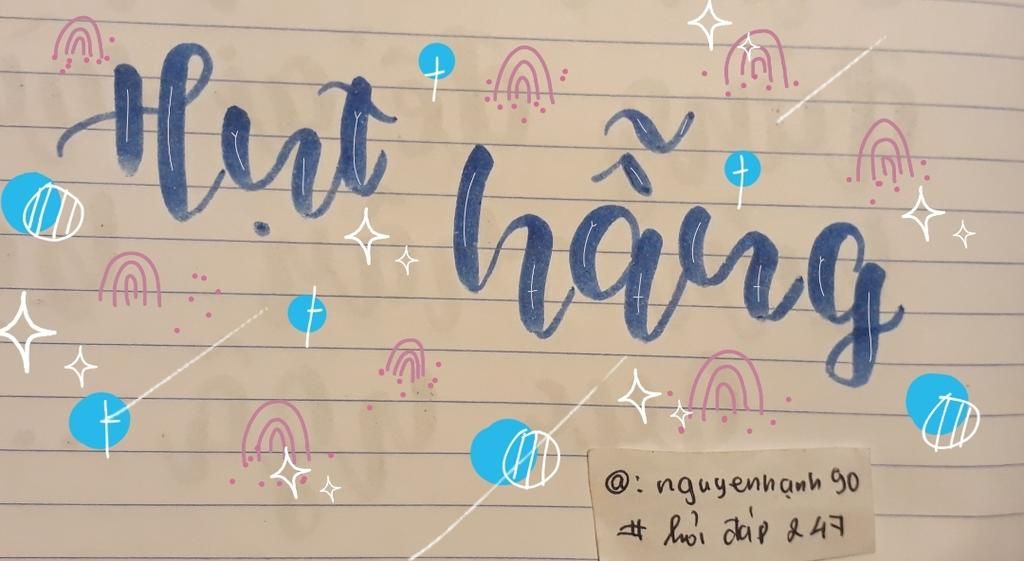 Hụt
hẫng
@: nguyenhạnh 90
# hỏi đáp 247